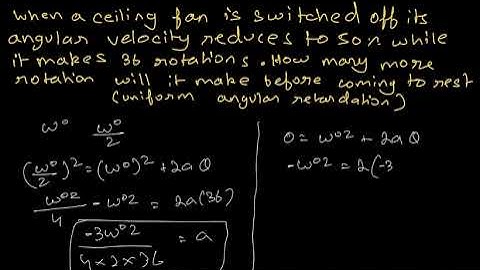 when a ceiling fan is switched off its
angular velocity reduces to 50% while
it makes 36 rotations. How many more
rotation will it make before coming to rest
(uniform angular retardation)
ω⁰ ω⁰/2
(ω⁰/2)² = (ω⁰)² + 2a θ
ω⁰²/4 - ω⁰² = 2a(36)
-3ω⁰²/4×2×36 = a
0 = ω⁰² + 2a θ
-ω⁰² = 2(-3